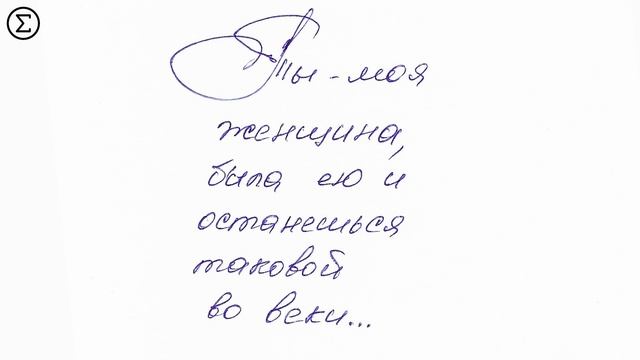 Σ
Ты - моя
женщина,
была ею и
останешься
таковой
во веки...